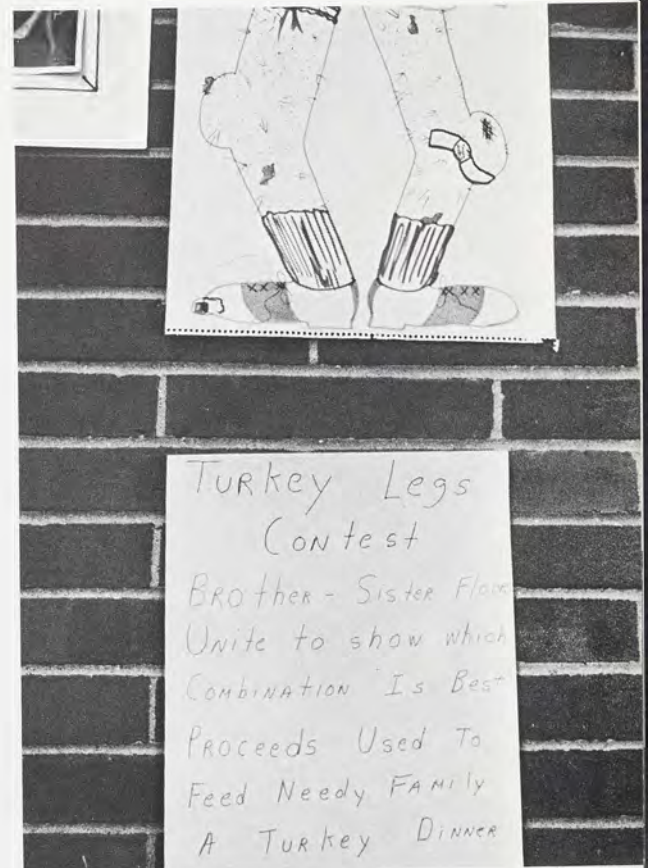 Turkey Legs
Contest
Brother - Sister Floors
Unite to show which
Combination Is Best
Proceeds Used To
Feed Needy Family
A Turkey Dinner